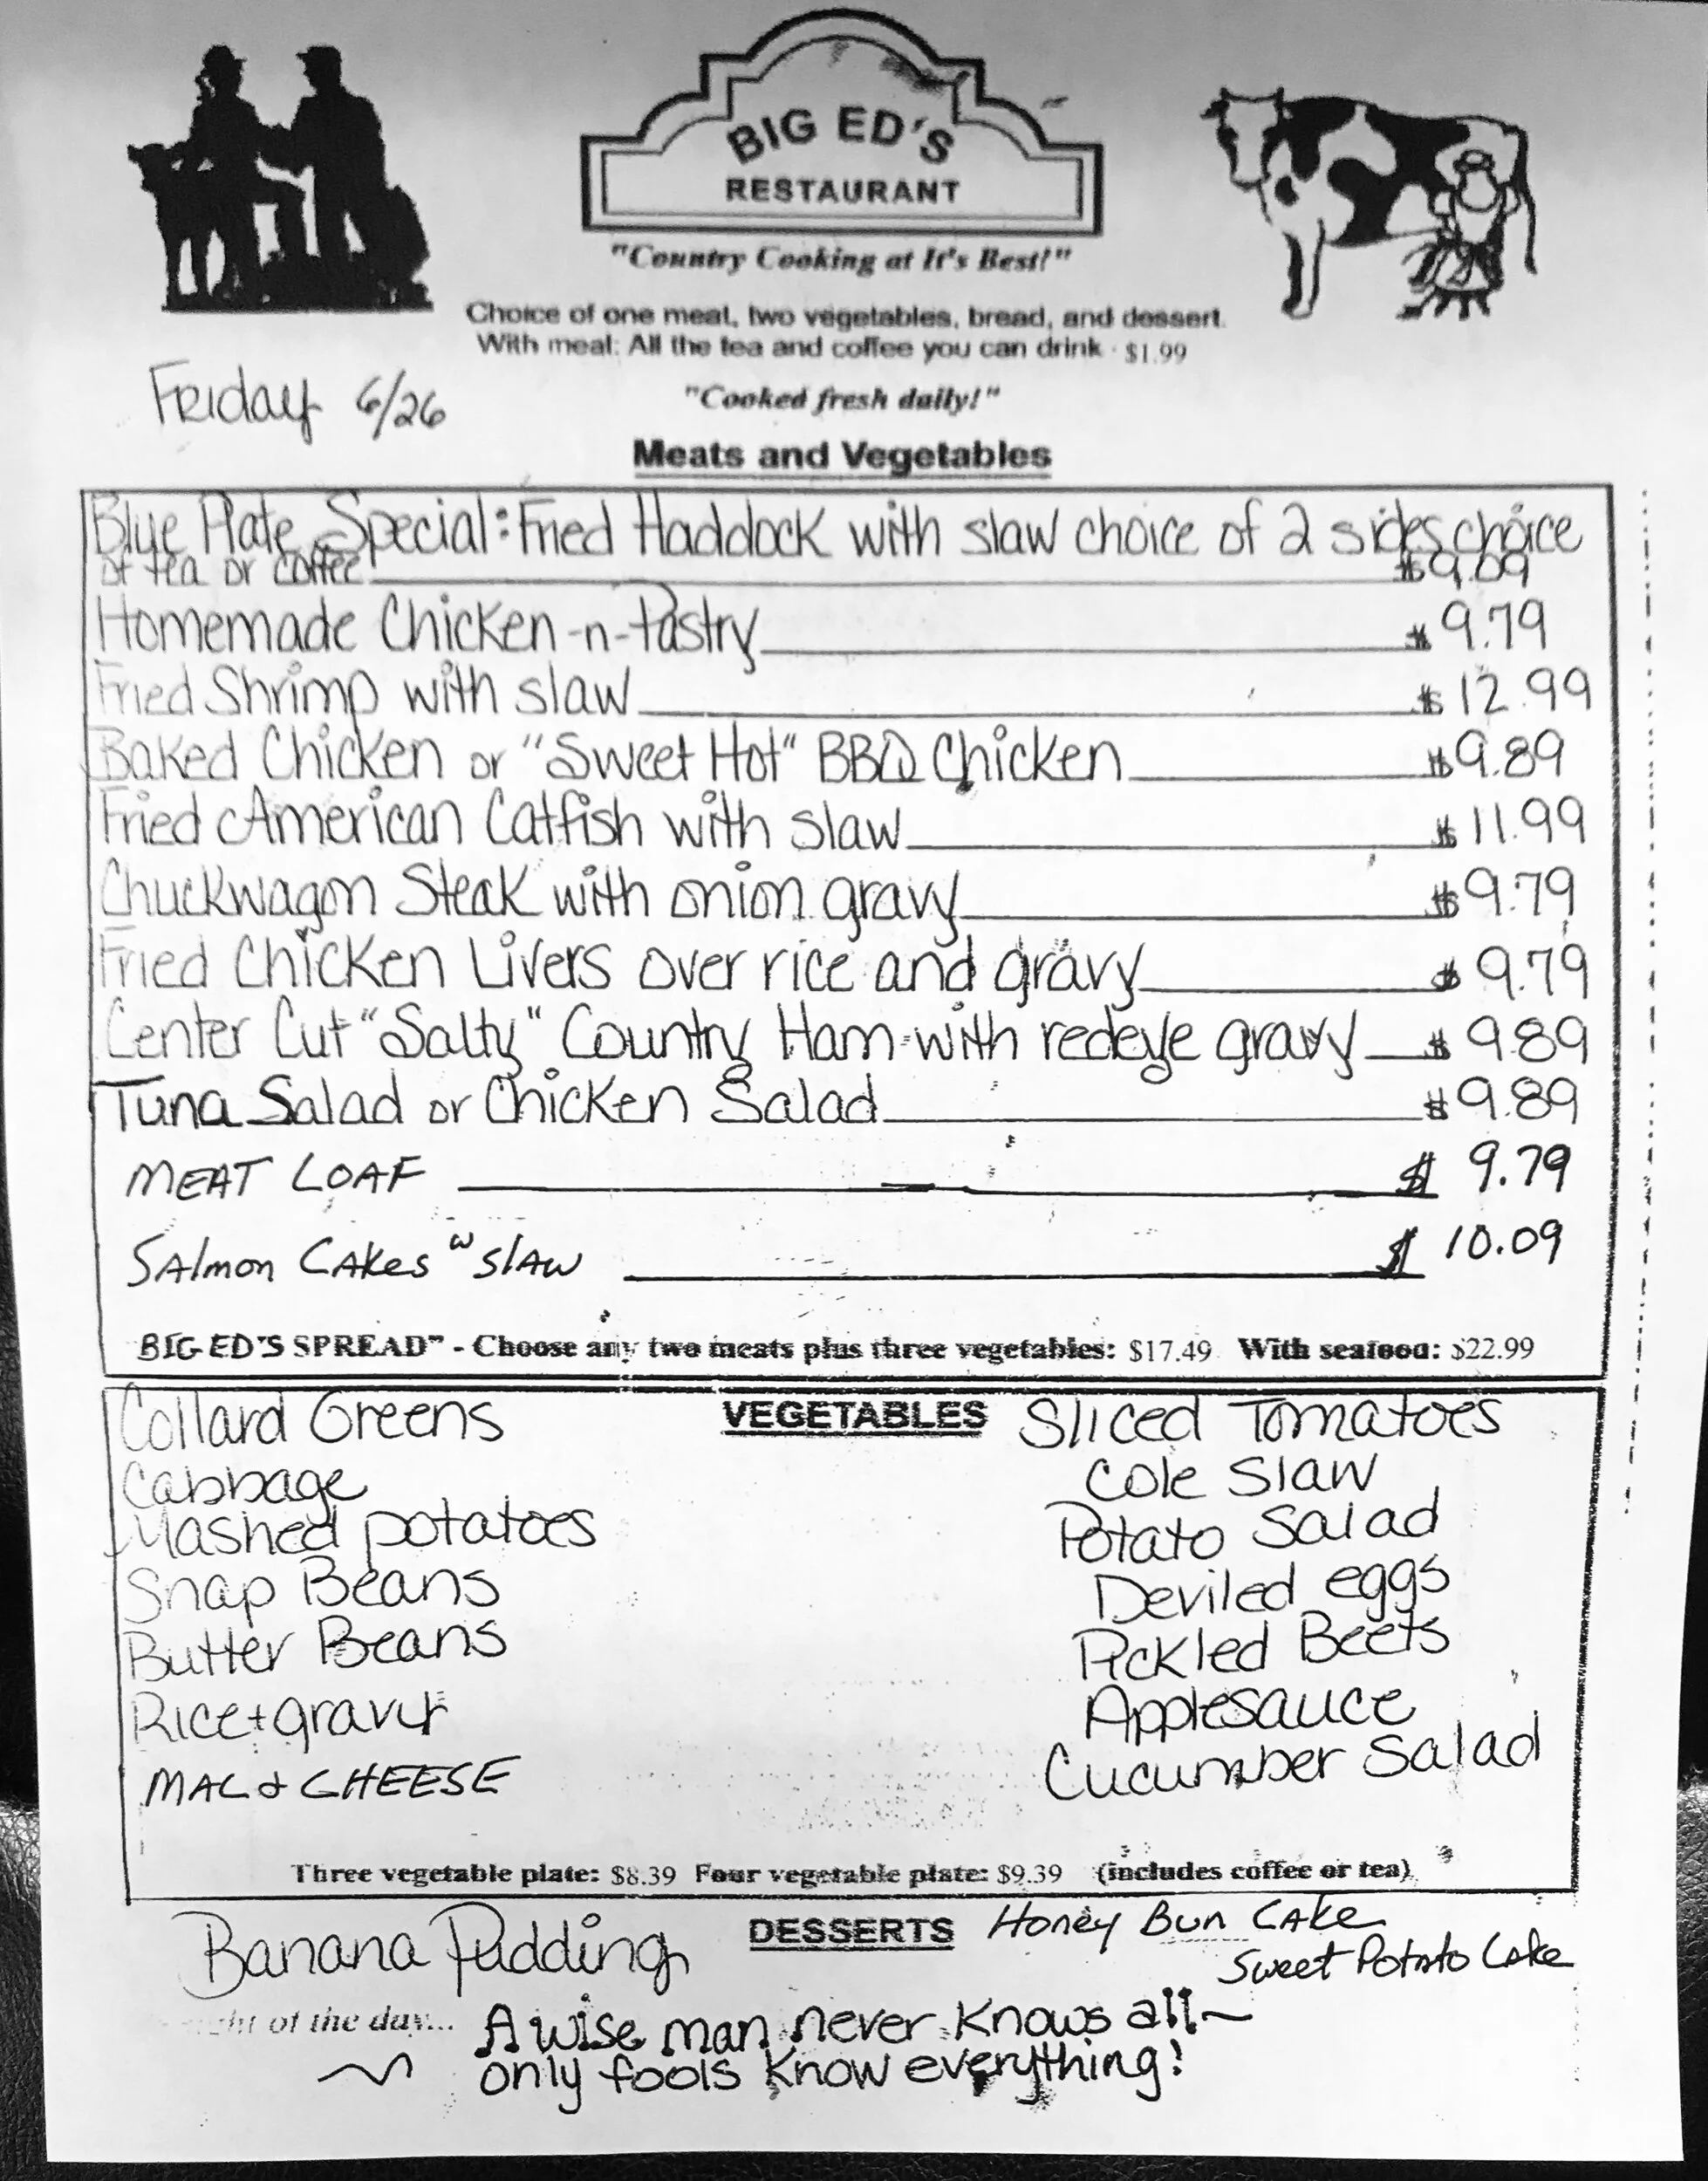 BIG ED'S
RESTAURANT
"Country Cooking at It's Best!"
Choice of one meat, two vegetables, bread, and dessert.
With meal: All the tea and coffee you can drink - $1.99
Friday 6/26
"Cooked fresh daily!"
Meats and Vegetables
Blue Plate Special: Fried Haddock with slaw choice of 2 sides choice
of tea or coffee $9.09
Homemade Chicken-n-Pastry $9.79
Fried Shrimp with slaw $12.99
Baked Chicken or "Sweet Hot" BBQ Chicken $9.89
Fried American Catfish with slaw $11.99
Chuckwagon Steak with onion gravy $9.79
Fried Chicken Livers over rice and gravy $9.79
Center Cut "Salty" Country Ham with redeye gravy $9.89
Tuna Salad or Chicken Salad $9.89
MEAT LOAF $9.79
SAlmon CAkes w slAw $10.09
BIG ED'S SPREAD" - Choose any two meats plus three vegetables: $17.49 With seafood: $22.99
VEGETABLES
Collard Greens
Cabbage
Mashed potatoes
Snap Beans
Butter Beans
Rice + gravy
MAC & CHEESE
Sliced Tomatoes
Cole Slaw
Potato Salad
Deviled eggs
Pickled Beets
Applesauce
Cucumber Salad
Three vegetable plate: $8.39 Four vegetable plate: $9.39 (includes coffee or tea)
DESSERTS
Banana Pudding
Honey Bun CAke
Sweet Potato Cake
of the day... A wise man never knows all~
~ only fools know everything!